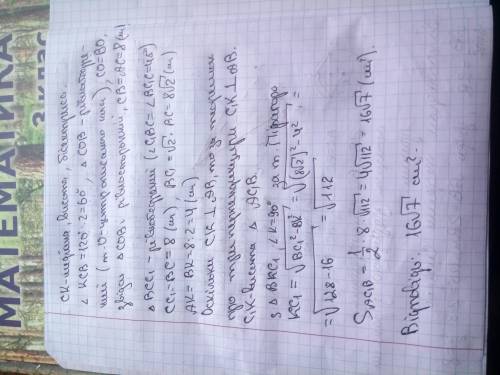 МАТЕМАТИКА
3 КЛАС
СК-медіана висота, бісектриса.
∠ KCB = 120°:2=60°, △ COB - рівнобедре-
ний (т.О-центр описаного кола), CO=BO,
звідси △ COB - рівносторонній, CB=AC=8(см)
△ BCC₁ - рівнобедрений (∠C₁BC=∠BC₁C=45)
CC₁=BC=8 (см), BC₁=√2·AC=8√2 (см)
AK=BK=8:2=4(см)
Оскільки CK⊥AB, то за теоремою
про три перпендикуляри C₁K⊥AB.
C₁K-висота △ AC₁B.
З △ BKC₁ ∠K=90° за т. Піфагора
KC₁=√BC₁²-BK²=√(8√2)²-4²=
=√128-16=√112
S AC₁B=1/2·8·√112=4√112=16√7 (см²).
Відповідь: 16√7 см².